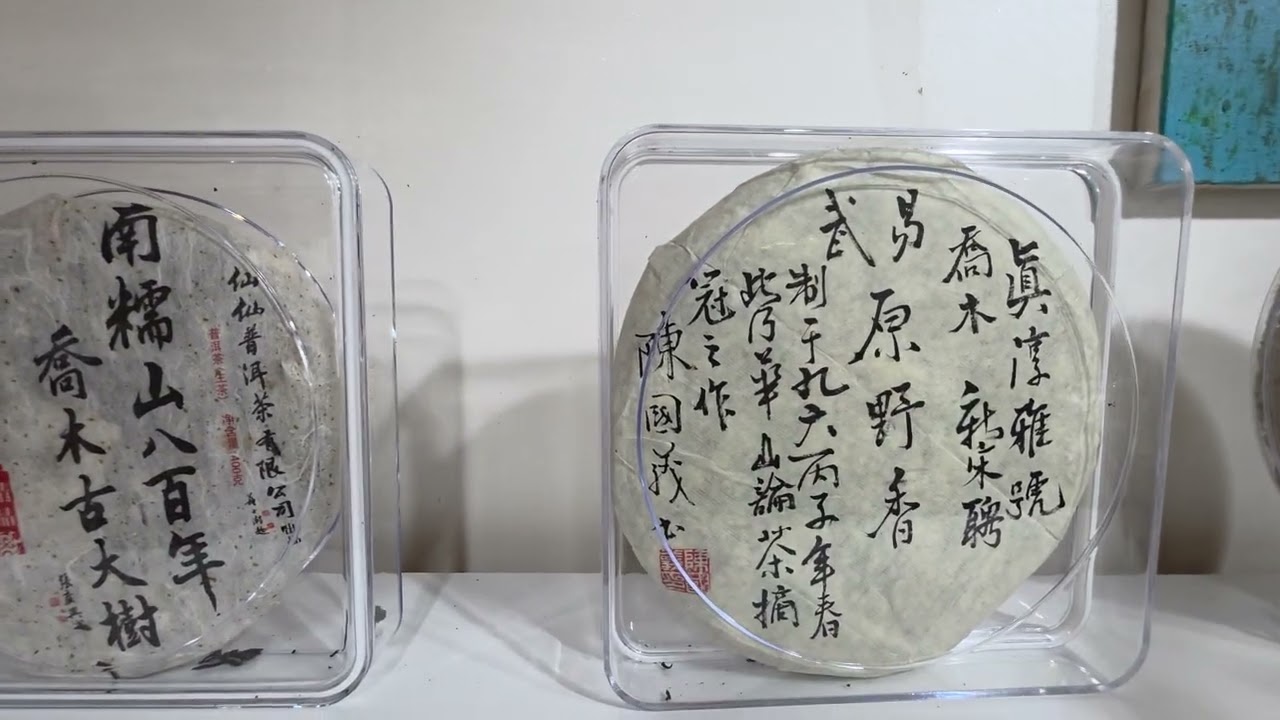 仙仙普洱茶有限公司
普洱茶(生茶) 净含量:400克
南糯山八百年
喬木古大樹
眞淳雅號
喬木 宋聘
易武
原野香
制于九六丙子年春
此乃華山論茶摘
冠之作
陳國義书